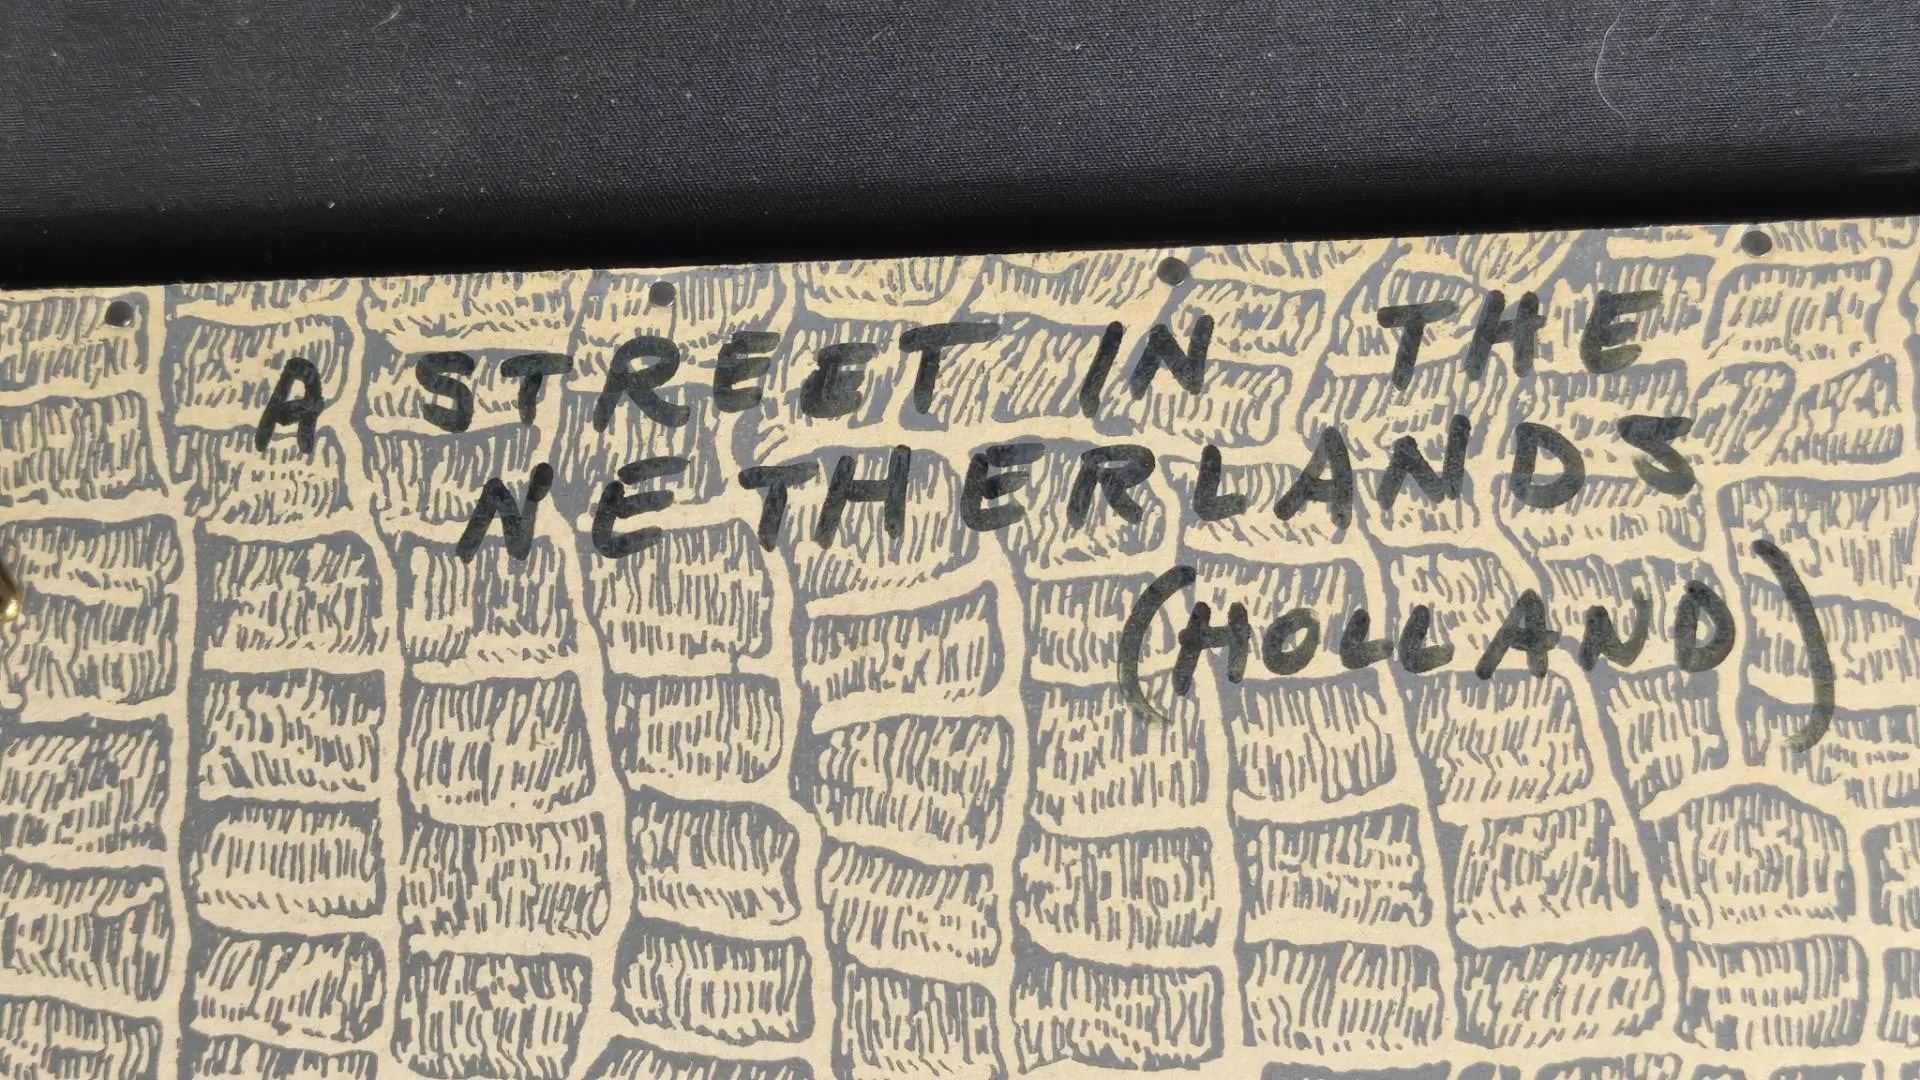 A STREET IN THE
NETHERLANDS
(HOLLAND)